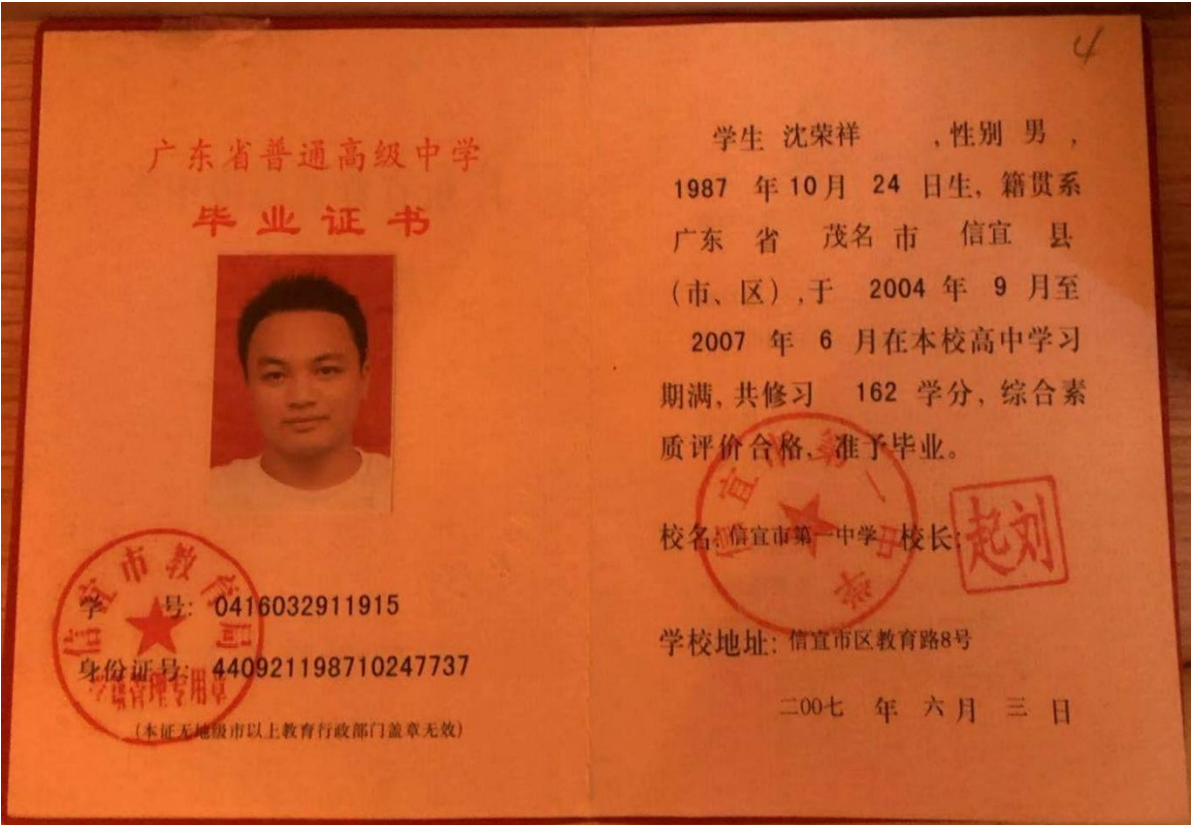 广东省普通高级中学
毕业证书
学 号: 0416032911915
身份证号: 440921198710247737
(本证无地级市以上教育行政部门盖章无效)
信宜市教育局
学籍管理专用章
4
学生 沈荣祥 ,性别 男 ,
1987 年 10 月 24 日生, 籍贯系
广东 省 茂名 市 信宜 县
(市、区) ,于 2004 年 9 月至
2007 年 6 月在本校高中学习
期满, 共修习 162 学分, 综合素
质评价合格, 准予毕业。
校名: 信宜市第一中学 校长:
信宜市第一中学
起刘
学校地址: 信宜市区教育路8号
二00七 年 六 月 三 日